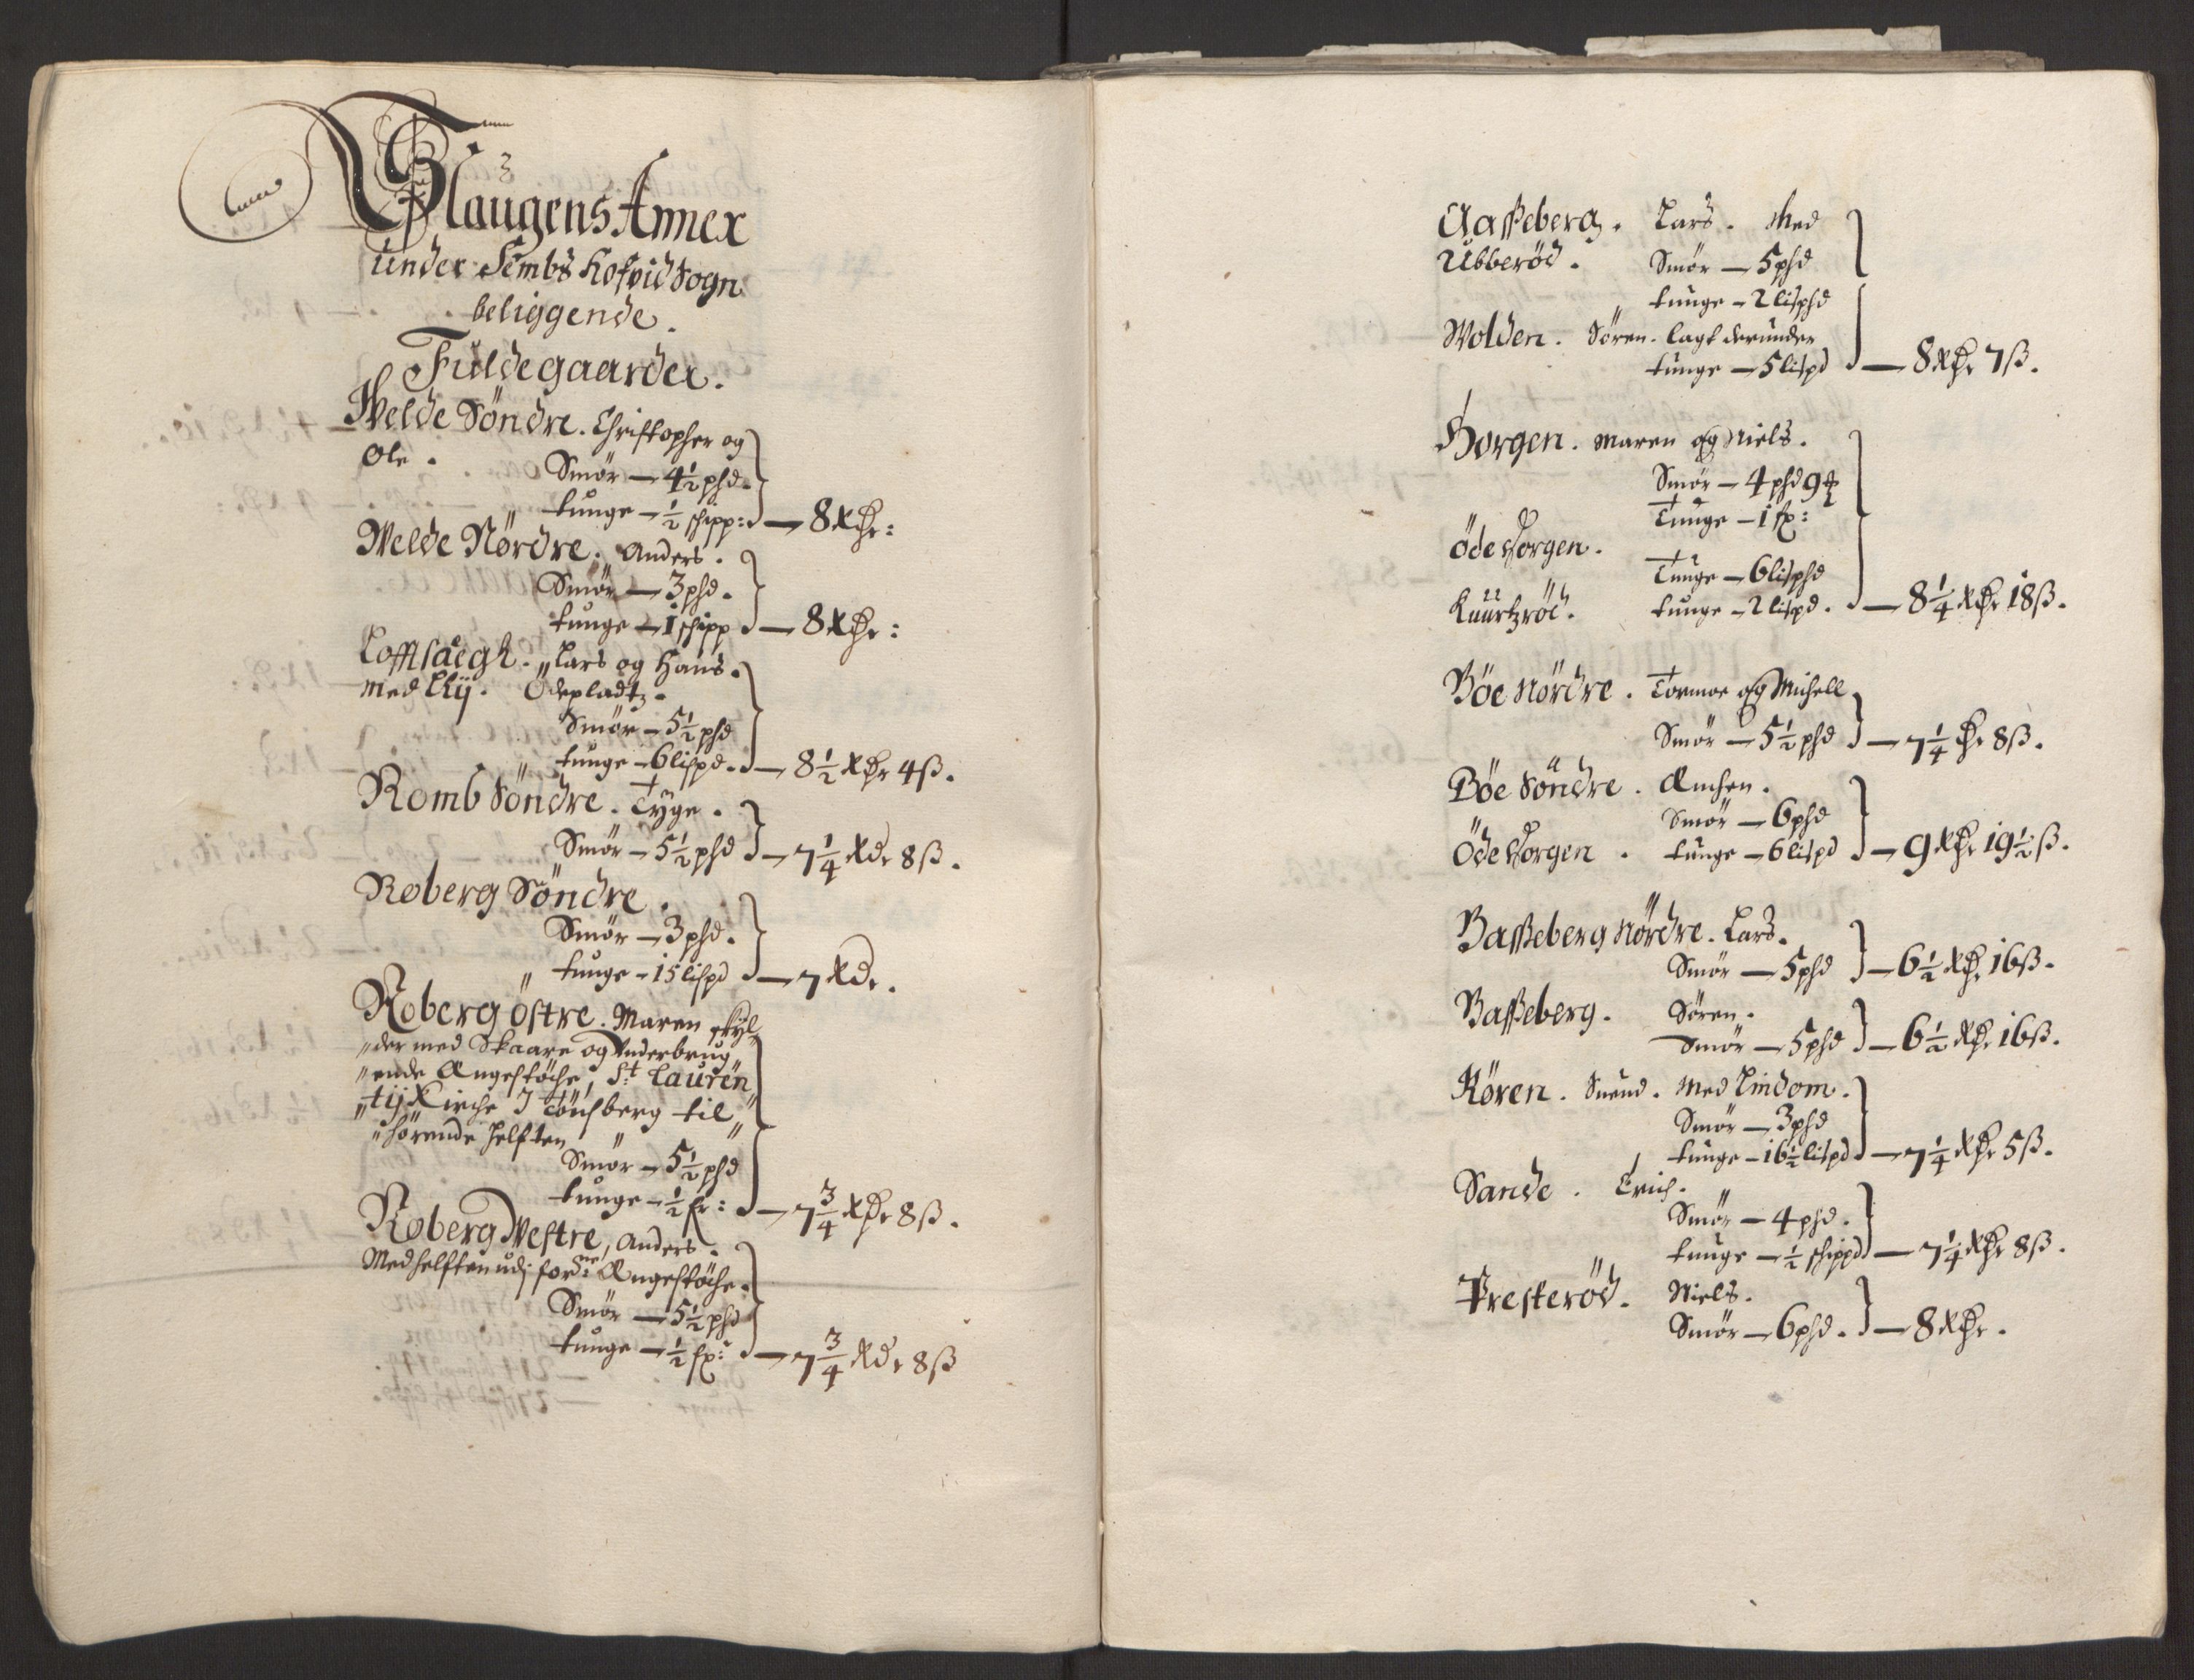 Slaugens Annex
under Sembs Hofvid Sogn
beliggende.
Fuldegaarder.
Welde Söndre. Christopher og
Ole.
Smör — 4½ phd.
tunge — ½ schipp: — 8 Rdr:
Welde Nördre. Anders.
Smör — 3 phd.
tunge — 1 schipp — 8 Rdr:
Lars og Hans.
med Lÿ. Ödepladtz.
Smör — 5½ phd
tunge — 6 lispd. — 8½ Rdr 4 ß.
Romb Söndre. Tyge.
Smör — 5½ phd — 7¼ Rdr 8 ß.
Roberg Söndre.
Smör — 3 phd.
tunge — 15 lispd — 7 Rdr.
Roberg östre. Maren skyl
der med Skaare og Underbrug
ende Engestöche, St Lauren
tij Kirche I Tönsberg til
hörende helften
Smör — 5½ phd
tunge — ½ — 7¾ Rdr 8 ß.
Roberg Westre, Anders.
Med helften udj Engestöche.
Smör — 5½ phd
tunge — ½ — 7¾ Rdr 8 ß
Aasseberg. Lars. Med
Ubberöd. Smör — 5 phd
tunge — 2 lisphd
Wolden. Sören. lagt derunder
tunge — 5 lispd — 8 Rdr 7 ß.
Borgen. Maren og Niels.
Smör — 4 phd 9
Tunge — 1
Öde Borgen. Tunge — 6 lisphd
Kuurtzröd. tunge — 2 lispd. — 8¼ Rdr 18 ß.
Böe Nördre. Tormoe og Michell
Smör — 5½ phd — 7¼ Rdr 8 ß.
Böe Söndre.
Smör — 6 phd
Öde Borgen. tunge — 6 lispd — 9 Rdr 19½ ß.
Basseberg Nördre. Lars.
Smör — 5 phd — 6½ Rdr 16 ß.
Basseberg. Sören.
Smör — 5 phd — 6½ Rdr 16 ß.
Rören. Suend. Med Lindom.
Smör — 3 phd
tunge — 16½ lispd — 7¼ Rdr 5 ß.
Sande. Erich.
Smör — 4 phd.
tunge — ½ schippd — 7¼ Rdr 8 ß.
Presteröd. Niels.
Smör — 6 phd. — 8 Rdr.